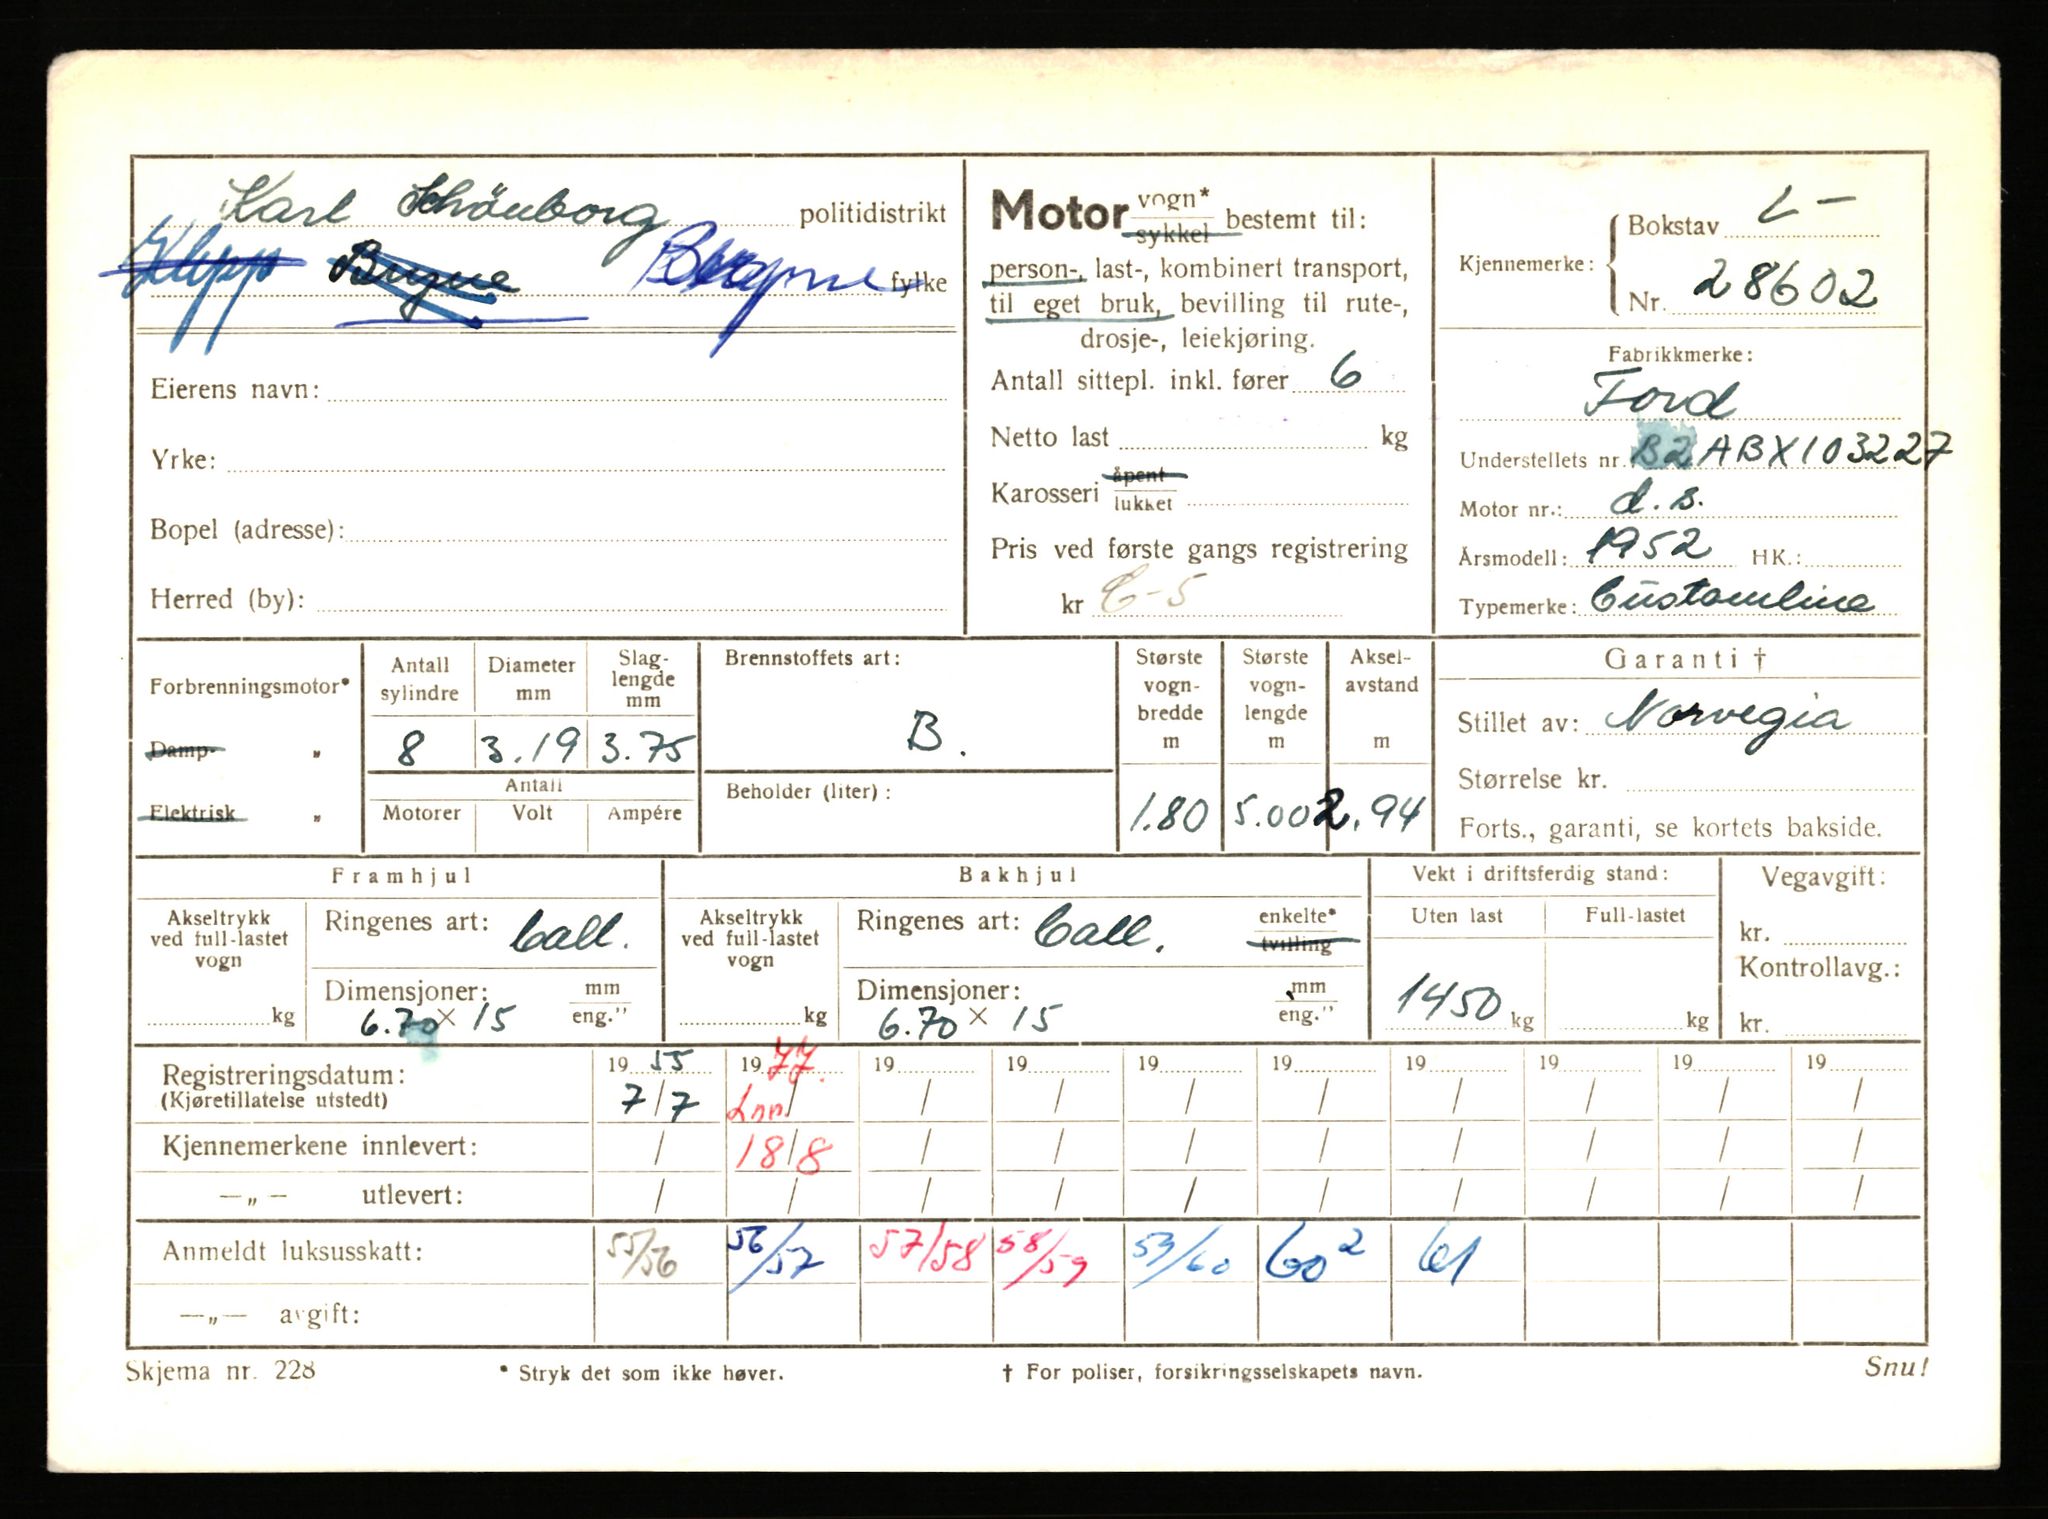 Karl Schönborg politidistrikt
Klepp Bryne Bryne fylke
Eierens navn:
Yrke:
Bopel (adresse):
Herred (by):
Motor vogn* sykkel bestemt til:
person-, last-, kombinert transport,
til eget bruk, bevilling til rute-,
drosje-, leiekjøring.
Antall sittepl. inkl. fører 6
Netto last kg
Karosseri åpent lukket
Pris ved første gangs registrering
kr C-5
Kjennemerke: Bokstav L-
Nr. 28602
Fabrikkmerke:
Ford
Understellets nr. B2ABX103227
Motor nr.: d.s.
Årsmodell: 1952 HK.:
Typemerke: Customline
Forbrenningsmotor*
Damp- „
Elektrisk „
Antall sylindre Diameter mm Slag-lengde mm
8 3.19 3.75
Antall
Motorer Volt Ampére
Brennstoffets art:
B.
Beholder (liter):
Største vogn-bredde m Største vogn-lengde m Aksel-avstand m
1.80 5.00 2.94
Garanti †
Stillet av: Norvegia
Størrelse kr.
Forts., garanti, se kortets bakside.
Framhjul
Akseltrykk ved full-lastet vogn
kg
Ringenes art: Call.
Dimensjoner: mm eng."
6.70 × 15
Bakhjul
Akseltrykk ved full-lastet vogn
kg
Ringenes art: Call. enkelte* tvilling
Dimensjoner: mm eng."
6.70 × 15
Vekt i driftsferdig stand:
Uten last Full-lastet
1450 kg kg
Vegavgift:
kr.
Kontrollavg.:
kr.
Registreringsdatum: 19 55 19 77. 19 19 19 19 19 19 19 19
(Kjøretillatelse utstedt) 7/7 Inn. / / / / / / / / /
Kjennemerkene innlevert: / 18/8 / / / / / / / /
—„— utlevert: / / / / / / / / / /
Anmeldt luksusskatt: 55/56 56/57 57/58 58/59 59/60 60² 61
—„— avgift:
Skjema nr. 228 * Stryk det som ikke høver. † For poliser, forsikringsselskapets navn. Snu!